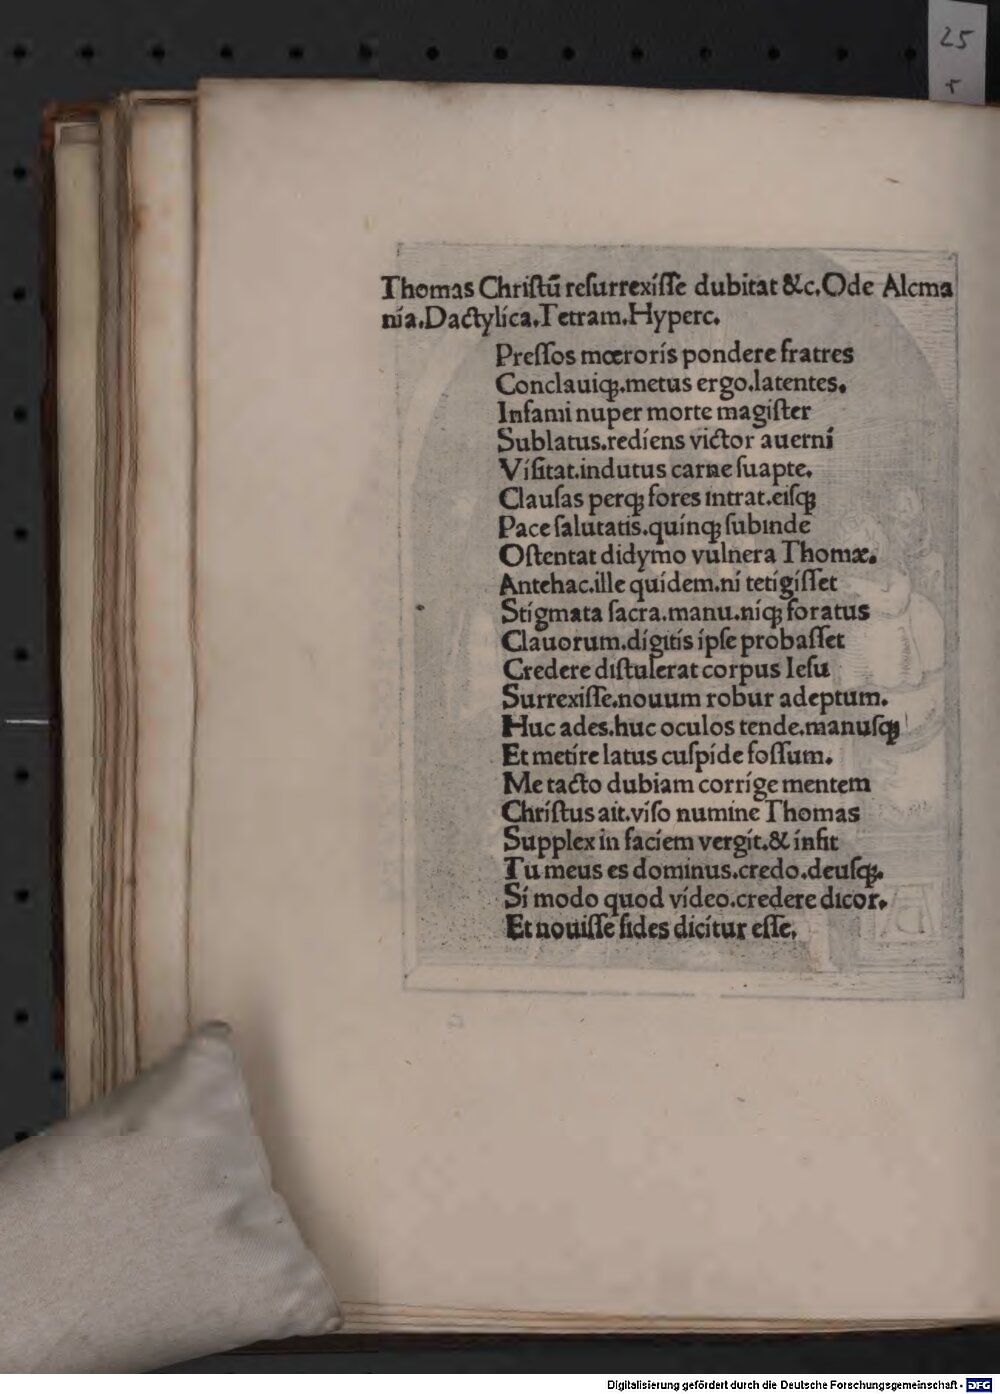 25
r
Thomas Chriſtū reſurrexiſſe dubitat &c. Ode Alcma
nia. Dactylica. Tetram. Hyperc.
Preſſos mœroris pondere fratres
Conclauiqꝫ. metus ergo. latentes.
Infami nuper morte magiſter
Sublatus. rediens victor auerni
Viſitat. indutus carne ſuapte.
Clauſas perqꝫ fores intrat. eiſqꝫ
Pace ſalutatis. quinqꝫ ſubinde
Oſtentat didymo vulnera Thomæ.
Antehac. ille quidem. ni tetigiſſet
Stigmata ſacra. manu. niqꝫ foratus
Clauorum. digitis ipſe probaſſet
Credere diſtulerat corpus Ieſu
Surrexiſſe. nouum robur adeptum.
Huc ades. huc oculos tende. manuſqꝫ
Et metire latus cuſpide foſſum.
Me tacto dubiam corrige mentem
Chriſtus ait. viſo numine Thomas
Supplex in faciem vergit. & infit
Tu meus es dominus. credo. deuſqꝫ.
Si modo quod video. credere dicor.
Et nouiſſe fides dicitur eſſe.
Digitalisierung gefördert durch die Deutsche Forschungsgemeinschaft - DFG